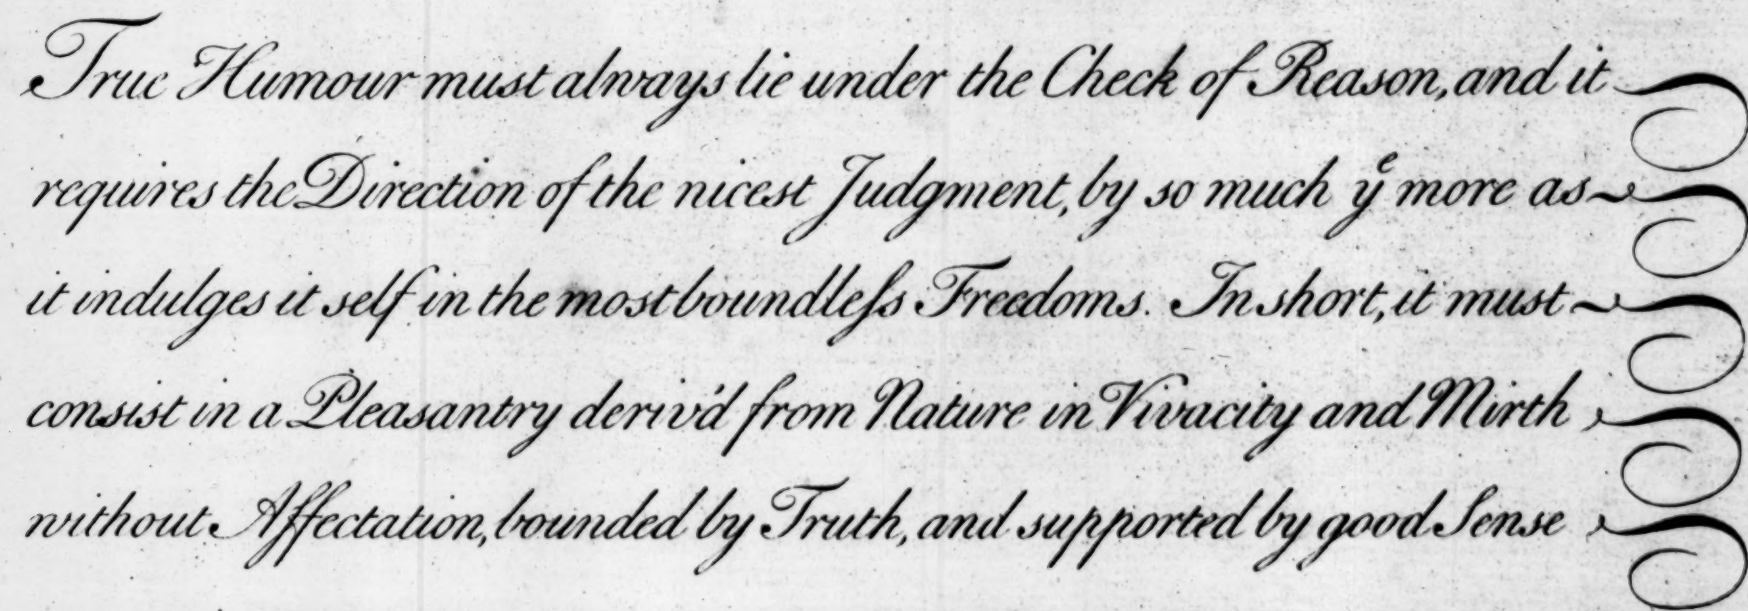 True Humour must always lie under the Check of Reason, and it
requires the Direction of the nicest Judgment, by so much yᵉ more as
it indulges it self in the most boundleſs Freedoms. In short, it must
consist in a Pleasantry deriv'd from Nature in Vivacity and Mirth
without Affectation, bounded by Truth, and supported by good Sense